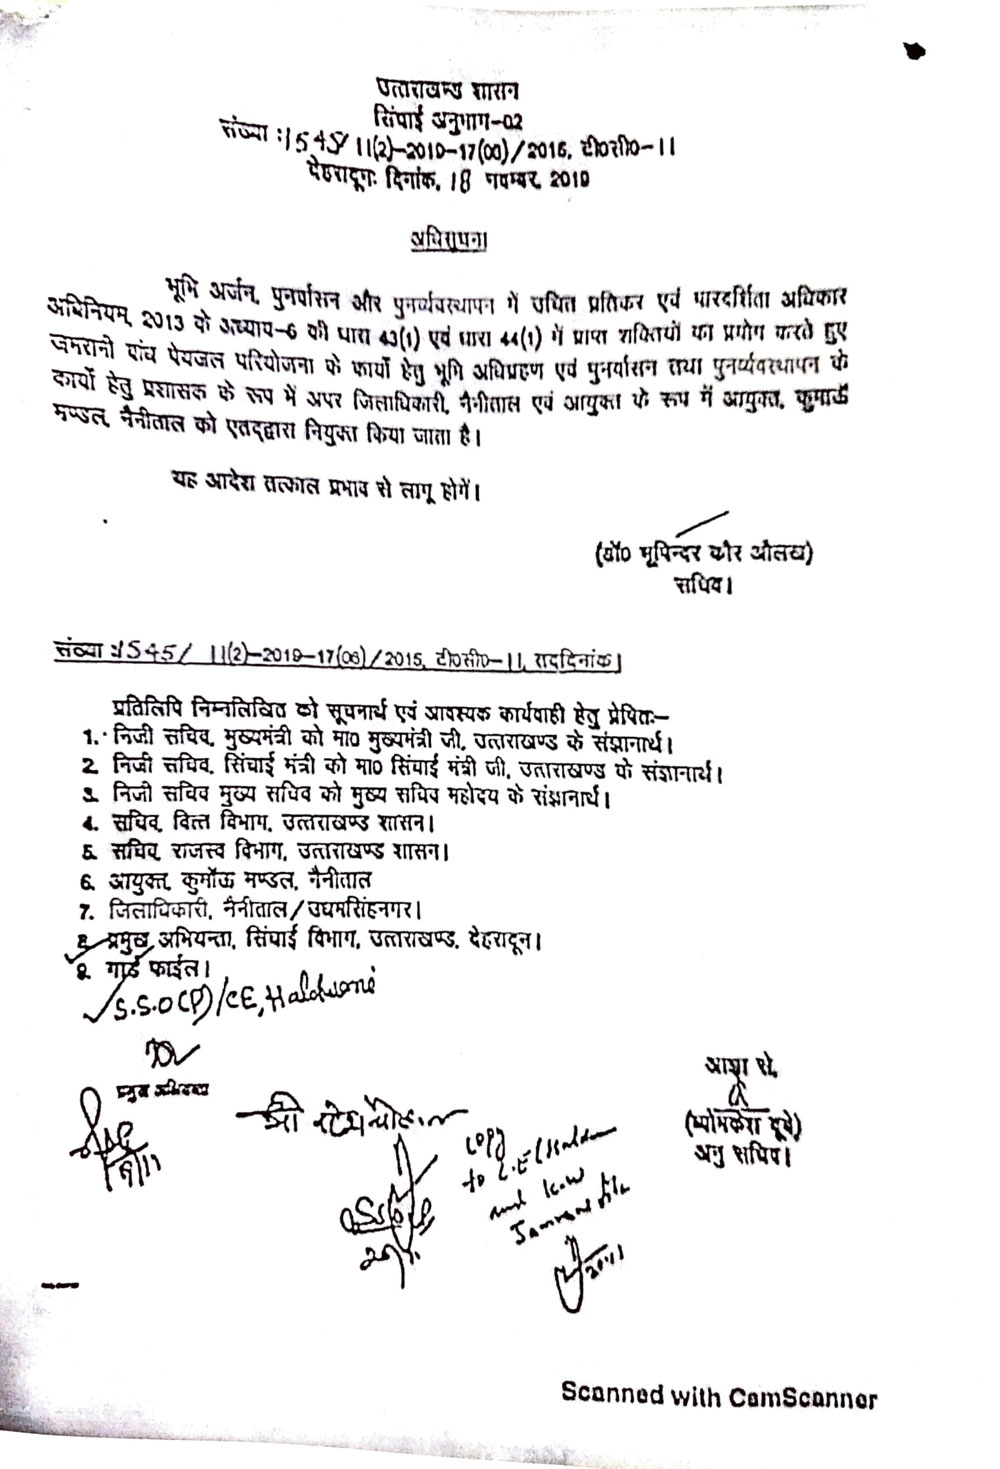 उत्तराखण्ड शासन
सिंचाई अनुभाग-02
संख्या :1545/ 11(2)-2019-17(06)/2015, टी०सी०-11
देहरादूनः दिनांक, 18 नवम्बर, 2019
अधिसूचना
भूमि अर्जन, पुनर्वासन और पुनर्व्यवस्थापन में उचित प्रतिकर एवं पारदर्शिता अधिकार
अधिनियम, 2013 के अध्याय-6 की धारा 43(1) एवं धारा 44(1) में प्राप्त शक्तियों का प्रयोग करते हुए
जमरानी बांध पेयजल परियोजना के कार्यो हेतु भूमि अधिग्रहण एवं पुनर्वासन तथा पुनर्व्यवस्थापन के
कार्यों हेतु प्रशासक के रूप में अपर जिलाधिकारी, नैनीताल एवं आयुक्त के रूप में आयुक्त, कुमाऊँ
मण्डल, नैनीताल को एतद्द्वारा नियुक्त किया जाता है।
यह आदेश तत्काल प्रभाव से लागू होगें।
(डॉ० भूपिन्दर कौर औलख)
सचिव।
संख्या :1545/ 11(2)-2019-17(06)/2015, टी०सी०-11, तद्दिनांक।
प्रतिलिपि निम्नलिखित को सूचनार्थ एवं आवश्यक कार्यवाही हेतु प्रेषितः-
1. निजी सचिव, मुख्यमंत्री को मा० मुख्यमंत्री जी, उत्तराखण्ड के संज्ञानार्थ।
2. निजी सचिव, सिंचाई मंत्री को मा० सिंचाई मंत्री जी, उत्तराखण्ड के संज्ञानार्थ।
3. निजी सचिव मुख्य सचिव को मुख्य सचिव महोदय के संज्ञानार्थ।
4. सचिव, वित्त विभाग, उत्तराखण्ड शासन।
5. सचिव, राजस्व विभाग, उत्तराखण्ड शासन।
6. आयुक्त, कुमॉऊ मण्डल, नैनीताल
7. जिलाधिकारी, नैनीताल/उधमसिंहनगर।
8. प्रमुख अभियन्ता, सिंचाई विभाग, उत्तराखण्ड, देहरादून।
9. गार्ड फाईल।
S.S.O(P)/CE, Haldwani
आज्ञा से,
प्रमुख अभियन्ता
श्री
(व्योमकेश दूबे)
अनु सचिव।
19/11
copy
to C.E
and
20/11
Scanned with CamScanner